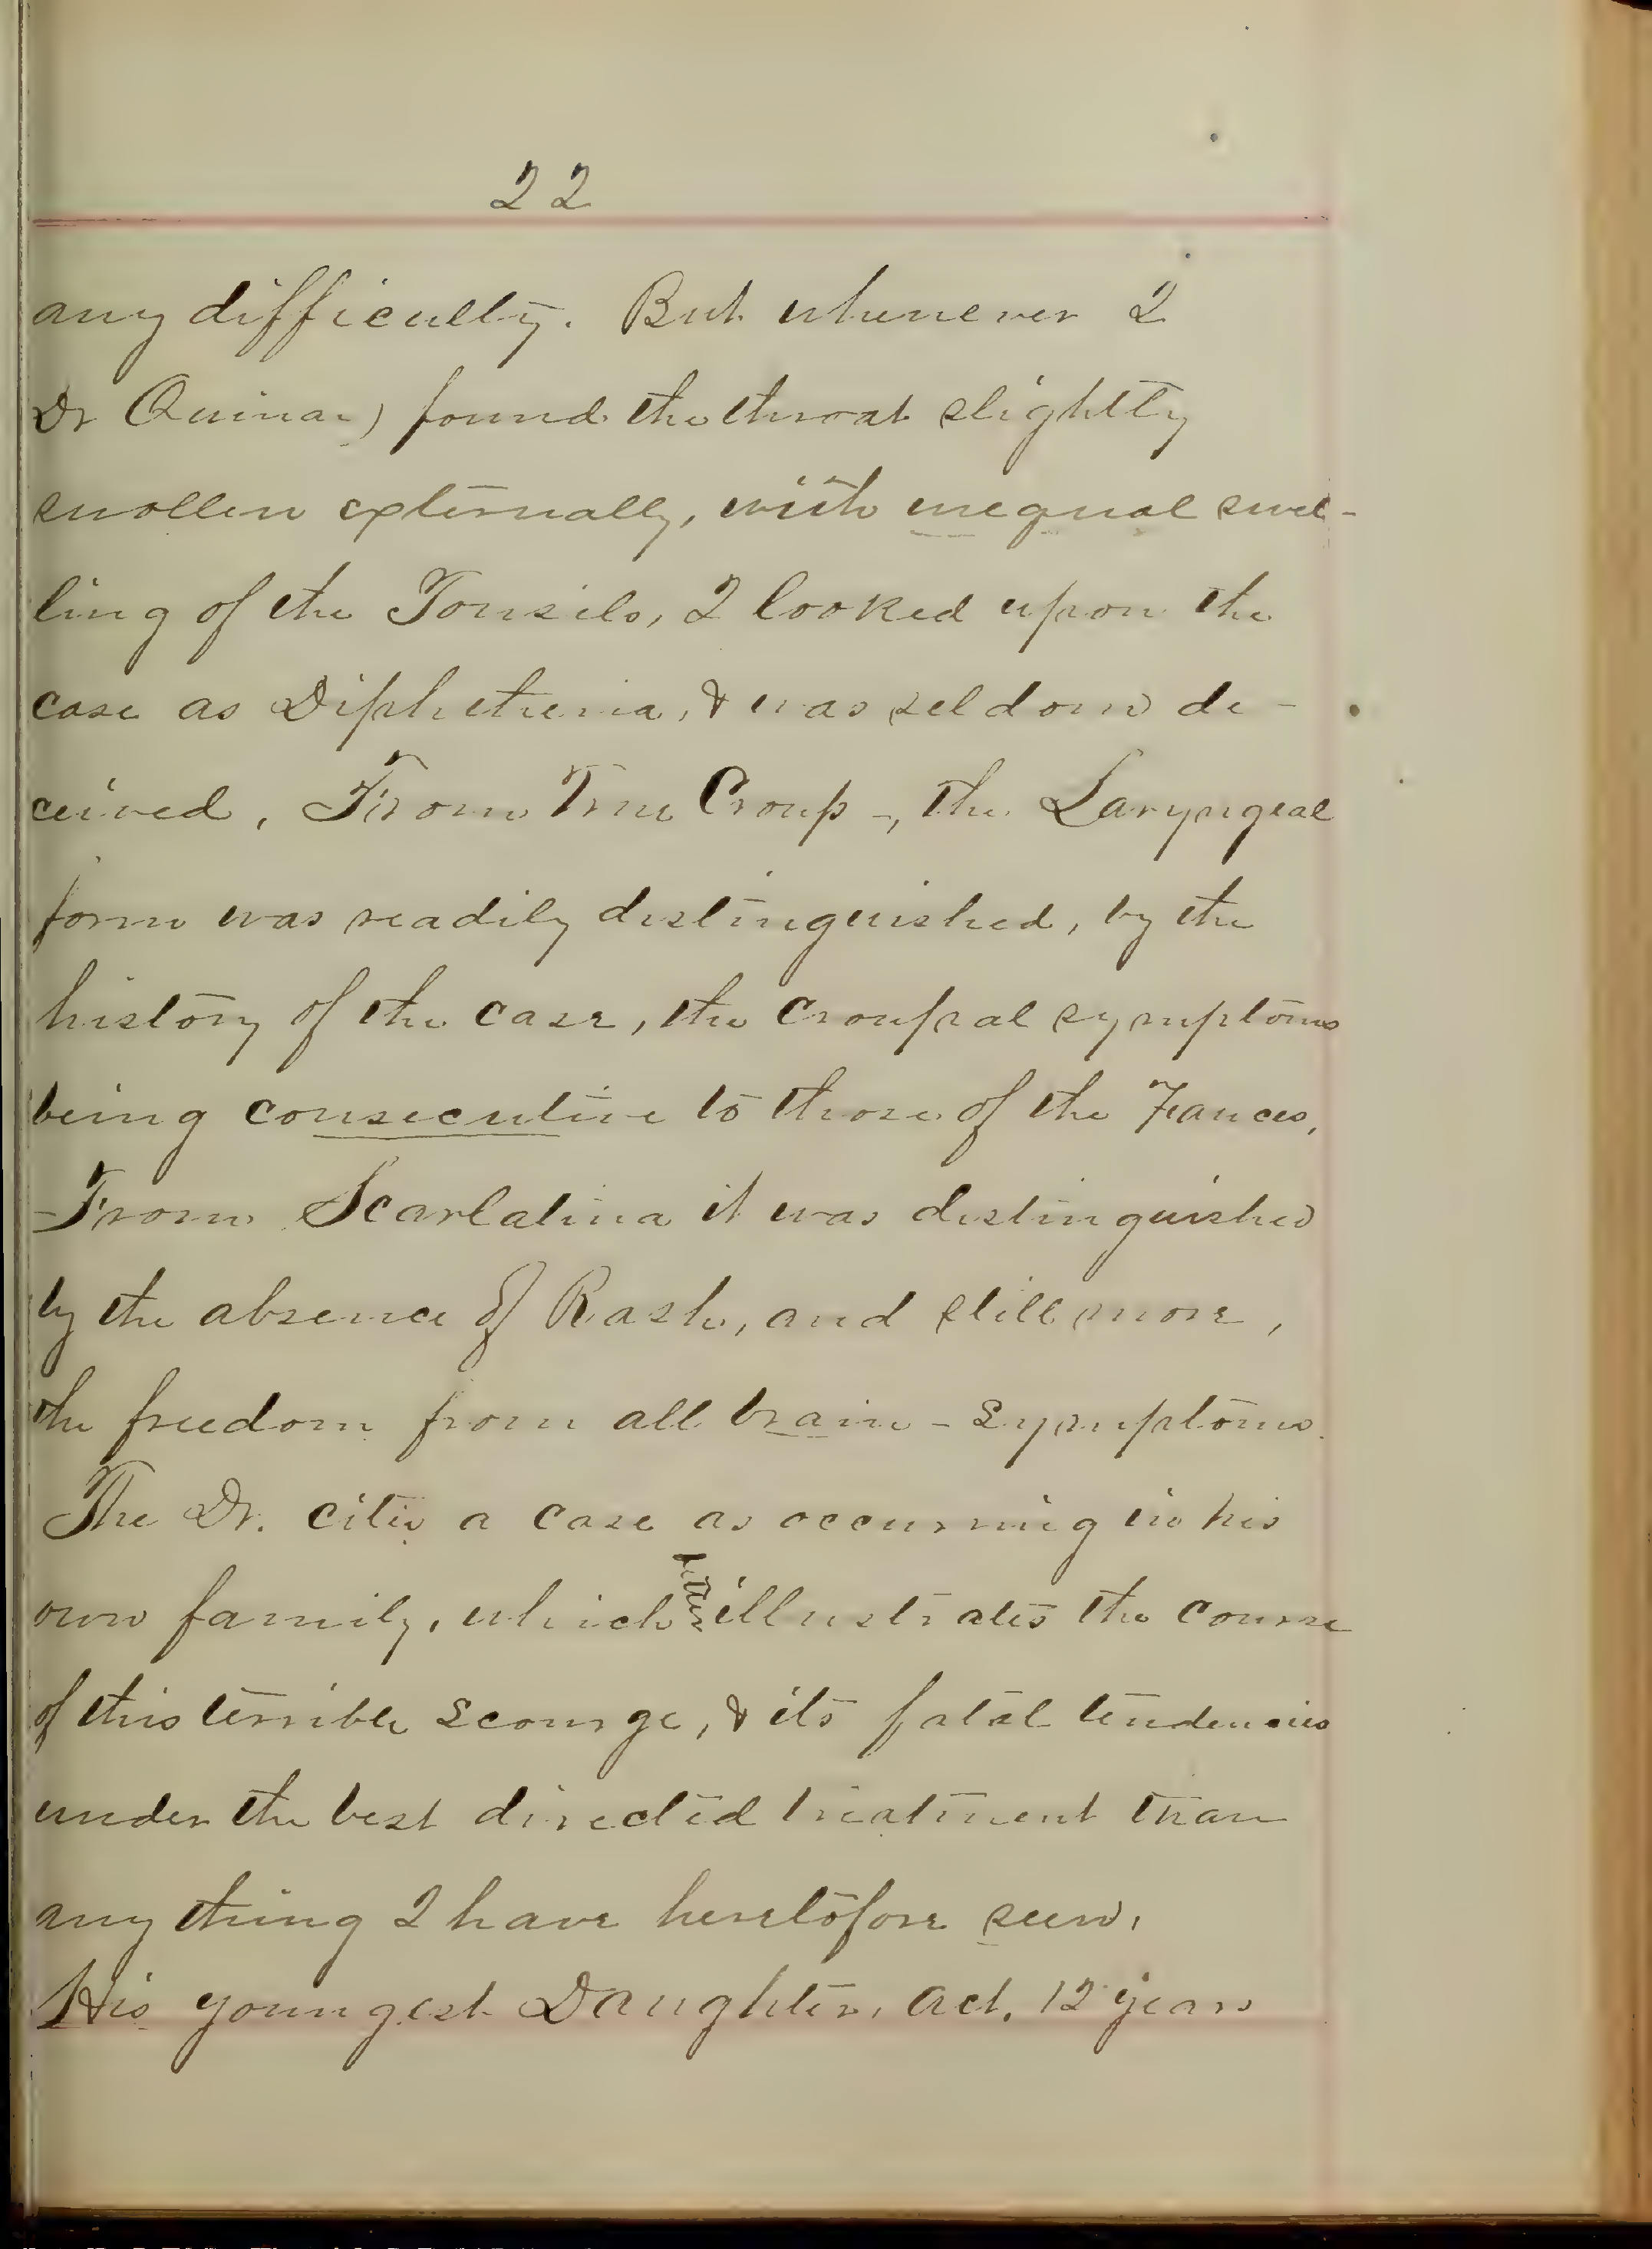 22
any difficulty. But whenever I
Dr Quinan) found the throat slightly
swollen externally, with unequal swel-
ling of the Tonsils, I looked upon the
case as Diphetheria, & was seldom de-
ceived, From True Croup -, the Laryngeal
form was readily distinguished, by the
history of the case, the Croupal symptoms
being consecutive to those of the Fauces,
From Scarlatina it was distinguished
by the absence of Rash, and still more,
the freedom from all brain - symptoms.
The Dr. cites a case as occurring in his
own family, which better illustrates the course
of this terrible scourge, & its fatal tendencies
under the best directed treatment than
any thing I have heretofore seen,
His youngest Daughter, aet. 12 years